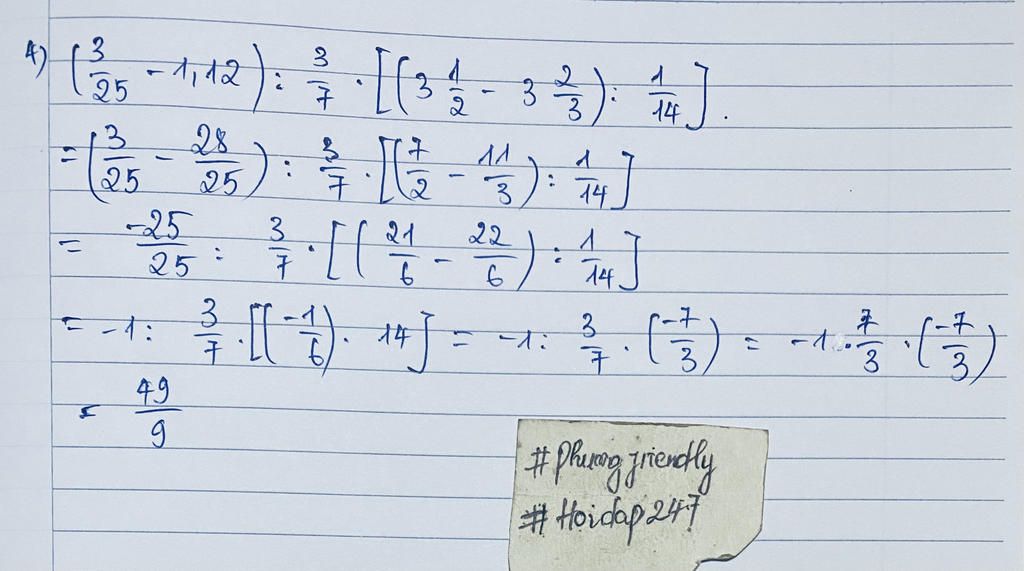 4) (3/25 - 1,12) : 3/7 . [(3 1/2 - 3 2/3) : 1/14].
= (3/25 - 28/25) : 3/7 . [(7/2 - 11/3) : 1/14]
= -25/25 : 3/7 . [(21/6 - 22/6) : 1/14]
= -1 : 3/7 . [(-1/6) . 14] = -1 : 3/7 . (-7/3) = -1 . 7/3 . (-7/3)
= 49/9
# Phuong friendly
# Hoidap247